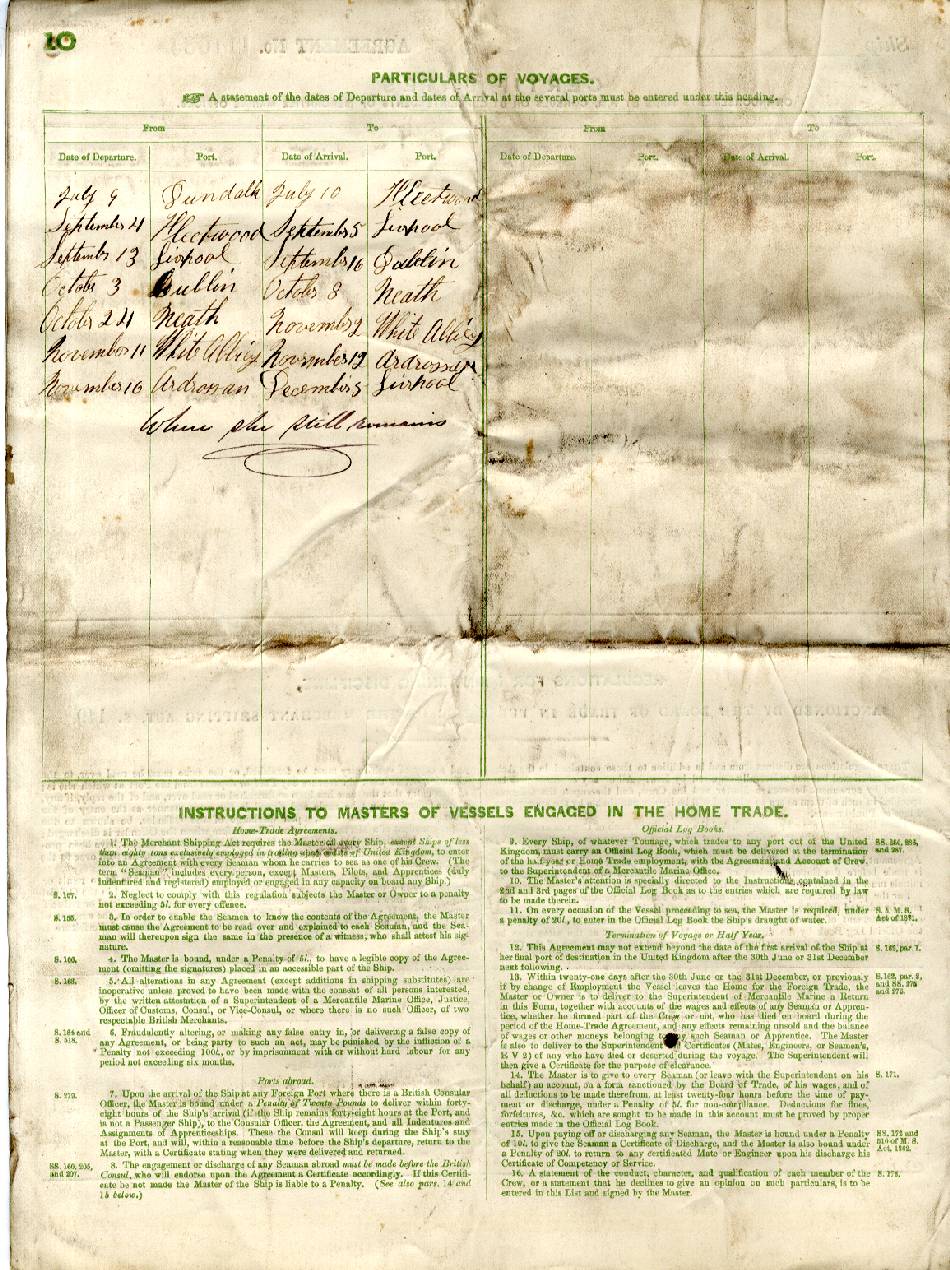 10
PARTICULARS OF VOYAGES.
☞ A statement of the dates of Departure and dates of Arrival at the several ports must be entered under this heading.
From To From To
Date of Departure. Port. Date of Arrival. Port. Date of Departure. Port. Date of Arrival. Port.
July 9 Dundalk July 10 Fleetwood
September 4 Fleetwood September 5 Liverpool
September 13 Liverpool September 16 Dublin
October 3 Dublin October 8 Neath
October 24 Neath November 2 White Abbey
November 11 White Abbey November 12 Ardrossan
November 16 Ardrossan December 5 Liverpool
Where she still remains
INSTRUCTIONS TO MASTERS OF VESSELS ENGAGED IN THE HOME TRADE.
Home-Trade Agreements.
1. The Merchant Shipping Act requires the Master of every Ship, except Ships of less
than eighty tons exclusively employed in trading
into an Agreement with every Seaman whom he carries to sea as one of his Crew. (The
term "Seaman" includes every person, except Masters, Pilots, and Apprentices (duly
indentured and registered) employed or engaged in any capacity on board any Ship.)
S. 167. 2. Neglect to comply with this regulation subjects the Master or Owner to a penalty
not exceeding 5l. for every offence.
3. In order to enable the Seamen to know the contents of the Agreement, the Master
must cause the Agreement to be read over and explained to each Seaman, and the Sea-
man will thereupon sign the same in the presence of a witness, who shall attest his sig-
nature.
4. The Master is bound, under a Penalty of 5l., to have a legible copy of the Agree-
ment (omitting the signatures) placed in an accessible part of the Ship.
5. All alterations in any Agreement (except additions in shipping substitutes) are
inoperative unless proved to have been made with the consent of all persons interested,
by the written attestation of a Superintendent of a Mercantile Marine Office, Justice,
Officer of Customs, Consul, or Vice-Consul, or where there is no such Officer, of two
respectable British Merchants.
6. Fraudulently altering, or making any false entry in, or delivering a false copy of
any Agreement, or being party to such an act, may be punished by the infliction of a
Penalty not exceeding 100l., or by imprisonment with or without hard labour for any
period not exceeding six months.
Ports abroad.
7. Upon the arrival of the Ship at any Foreign Port where there is a British Consular
Officer, the Master is bound under a Penalty of Twenty Pounds to deliver within forty-
eight hours of the Ship's arrival (if the Ship remains forty-eight hours at the Port, and
is not a Passenger Ship), to the Consular Officer, the Agreement, and all Indentures and
Assignments of Apprenticeships. These the Consul will keep during the Ship's stay
at the Port, and will, within a reasonable time before the Ship's departure, return to the
Master, with a Certificate stating when they were delivered and returned.
8. The engagement or discharge of any Seaman abroad must be made before the British
Consul, who will endorse upon the Agreement a Certificate accordingly. If this Certifi-
cate be not made the Master of the Ship is liable to a Penalty. (See also pars. 14 and
15 below.)
Official Log Books.
9. Every Ship, of whatever Tonnage, which trades to any port out of the United
Kingdom, must carry an Official Log Book, which must be delivered at the termination
of the half year or Home Trade employment, with the Agreement and Account of Crew,
to the Superintendent of a Mercantile Marine Office.
10. The Master's attention is specially directed to the Instructions contained in the
2nd and 3rd pages of the Official Log Book as to the entries which are required by law
to be made therein.
11. On every occasion of the Vessel proceeding to sea, the Master is required, under
a penalty of 20l., to enter in the Official Log Book the Ship's draught of water.
Termination of Voyage or Half Year.
12. This Agreement may not extend beyond the date of the first arrival of the Ship at
her final port of destination in the United Kingdom after the 30th June or 31st December
next following.
13. Within twenty-one days after the 30th June or the 31st December, or previously
if by change of Employment the Vessel leaves the Home for the Foreign Trade, the
Master or Owner is to deliver to the Superintendent of Mercantile Marine a Return
in this Form, together with accounts of the wages and effects of any Seaman or Appren-
tice, whether it formed part of the Crew or not, who has died on board during the
period of the Home-Trade Agreement, and any effects remaining unsold and the balance
of wages or other moneys belonging to any such Seaman or Apprentice. The Master
is also to deliver to the Superintendent the Certificates (Mates, Engineers, or Seamen's,
R V 2) of any who have died or deserted during the voyage. The Superintendent will
then give a Certificate for the purpose of clearance.
S. 171. 14. The Master is to give to every Seaman (or leave with the Superintendent on his
behalf) an account, on a form sanctioned by the Board of Trade, of his wages, and of
all deductions to be made therefrom, at least twenty-four hours before the time of pay-
ment or discharge, under a Penalty of 5l. for non-compliance. Deductions for fines,
forfeitures, &c. which are sought to be made in this account must be proved by proper
entries made in the Official Log Book.
15. Upon paying off or discharging any Seaman, the Master is bound under a Penalty
of 10l. to give the Seaman a Certificate of Discharge, and the Master is also bound under
a Penalty of 20l. to return to any certificated Mate or Engineer upon his discharge his
Certificate of Competency or Service.
16. A statement of the conduct, character, and qualification of each member of the
Crew, or a statement that he declines to give an opinion on such particulars, is to be
entered in this List and signed by the Master.